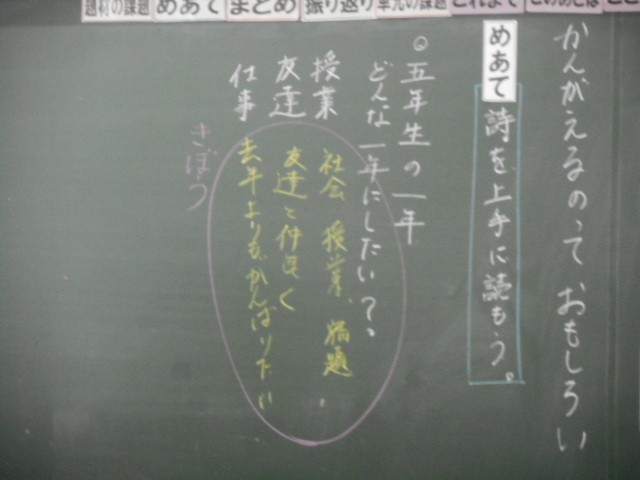 題材の課題
めあて
まとめ
振り返り
単元の課題
これまで
このあとは
かんがえるのって おもしろい
めあて 詩を上手に読もう。
◎五年生の一年
どんな一年にしたい？。
授業 社会 授業、
友達 友達と仲良く
仕事 去年よりもがんばりたい
きぼう